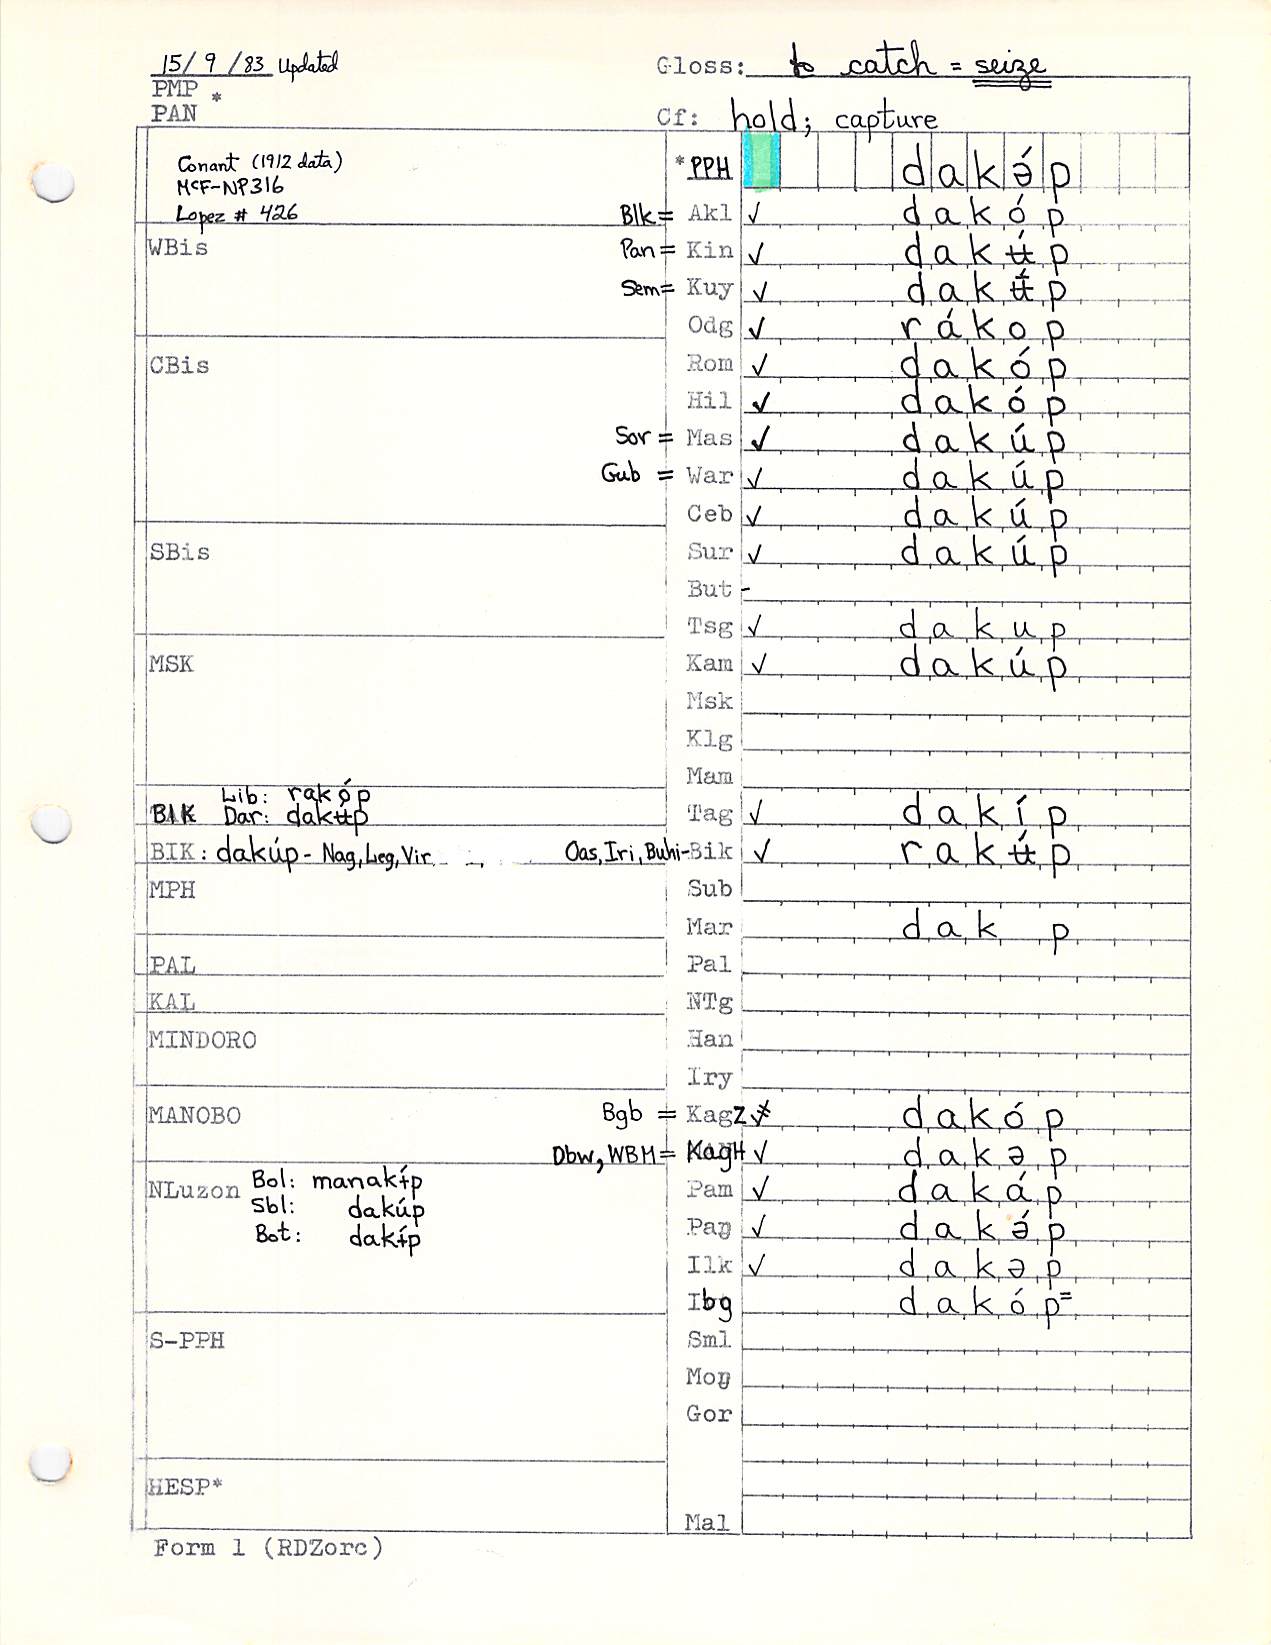 15/9/83 Updated
Gloss: to catch = seize
PMP *
PAN
Cf: hold; capture
Conant (1912 data)
McF-NP316
Lopez # 426
*PPH dakə́p
Blk = Akl ✓ dakóp
WBis
Pan = Kin ✓ dakʉ́p
Sem = Kuy ✓ dakʉ́p
Odg ✓ rákop
CBis
Rom ✓ dakóp
Hil ✓ dakóp
Sor = Mas ✓ dakúp
Gub = War ✓ dakúp
Ceb ✓ dakúp
SBis
Sur ✓ dakúp
But -
Tsg ✓ dakup
MSK
Kam ✓ dakúp
Msk
Klg
Mam
Lib: rakóp
BIK Dar: dakʉp
Tag ✓ dakíp
BIK: dakúp - Nag, Leg, Vir
Oas, Iri, Buhi - Bik ✓ rakʉ́p
MPH
Sub
Mar dak p
PAL
Pal
KAL
NTg
MINDORO
Han
Iry
MANOBO
Bgb = KagZ ✓ dakóp
Dbw, WBM = KagH ✓ dakəp
NLuzon Bol: manakɨ́p
Sbl: dakúp
Bot: dakɨ́p
Pam ✓ dakáp
Paŋ ✓ dakə́p
Ilk ✓ dakəp
Ibg dakóp=
S-PPH
Sml
Moŋ
Gor
HESP*
Mal
Form 1 (RDZorc)